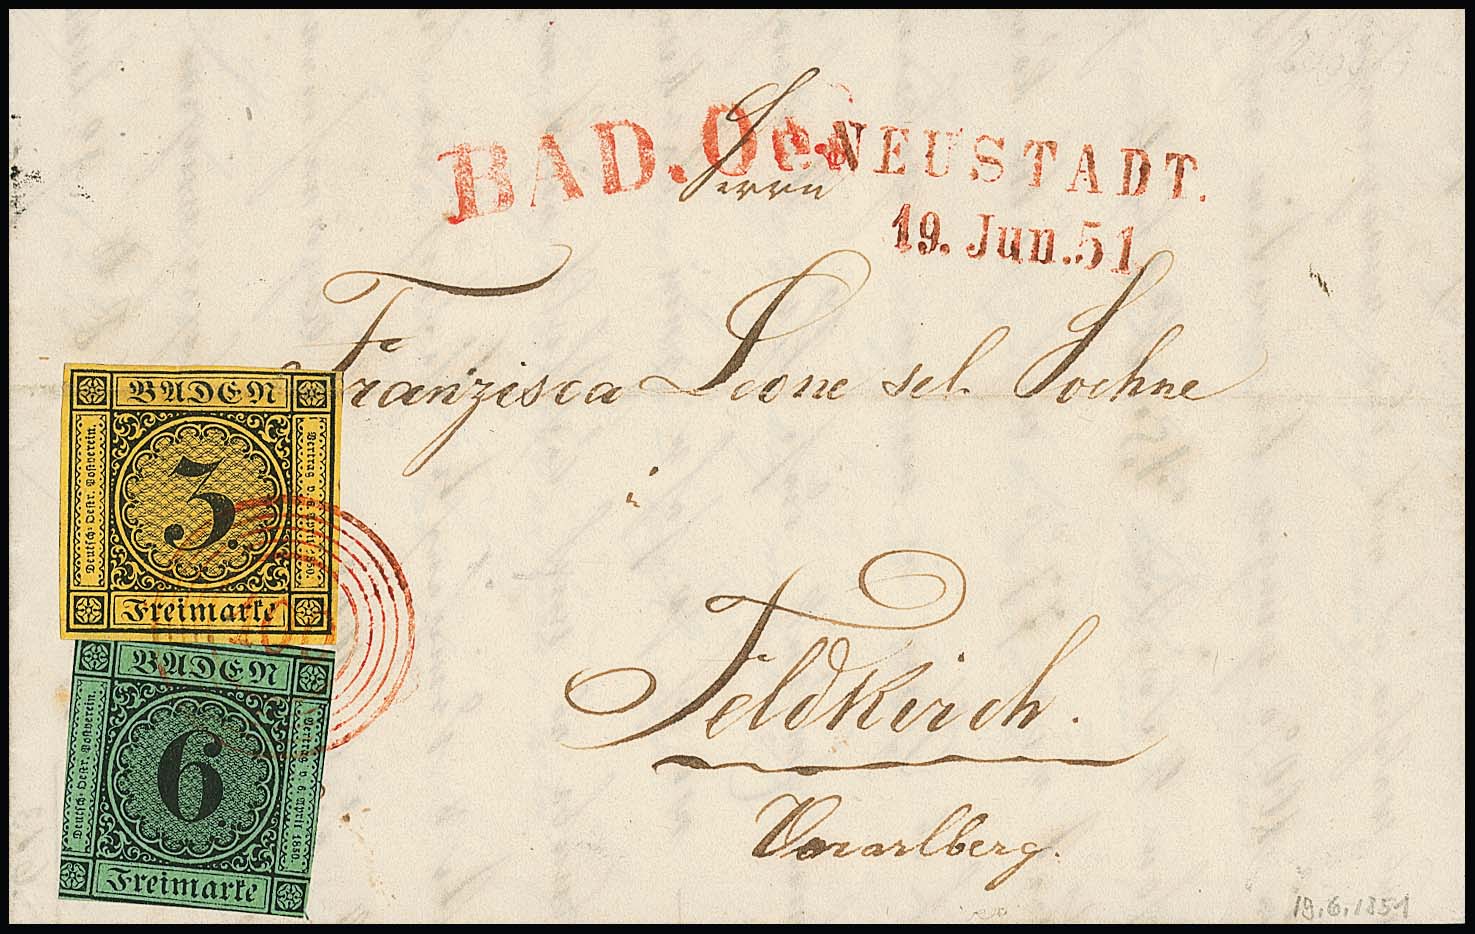 BAD. Oe.
NEUSTADT.
19. Jun. 51
Herrn
Franzisca Leone sel. Soehne
i
Feldkirch.
Vorarlberg.
BADEN
3.
Deutsch-Oestr. Postverein.
Vertrag v. 6. April 1850.
Freimarke
BADEN
6
Deutsch-Oestr. Postverein.
Vertrag v. 6. April 1850.
Freimarke
19.6.1851